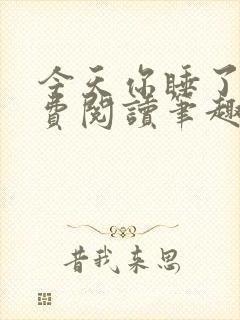 今天你睡了
費閱讀筆趣
昔我来思